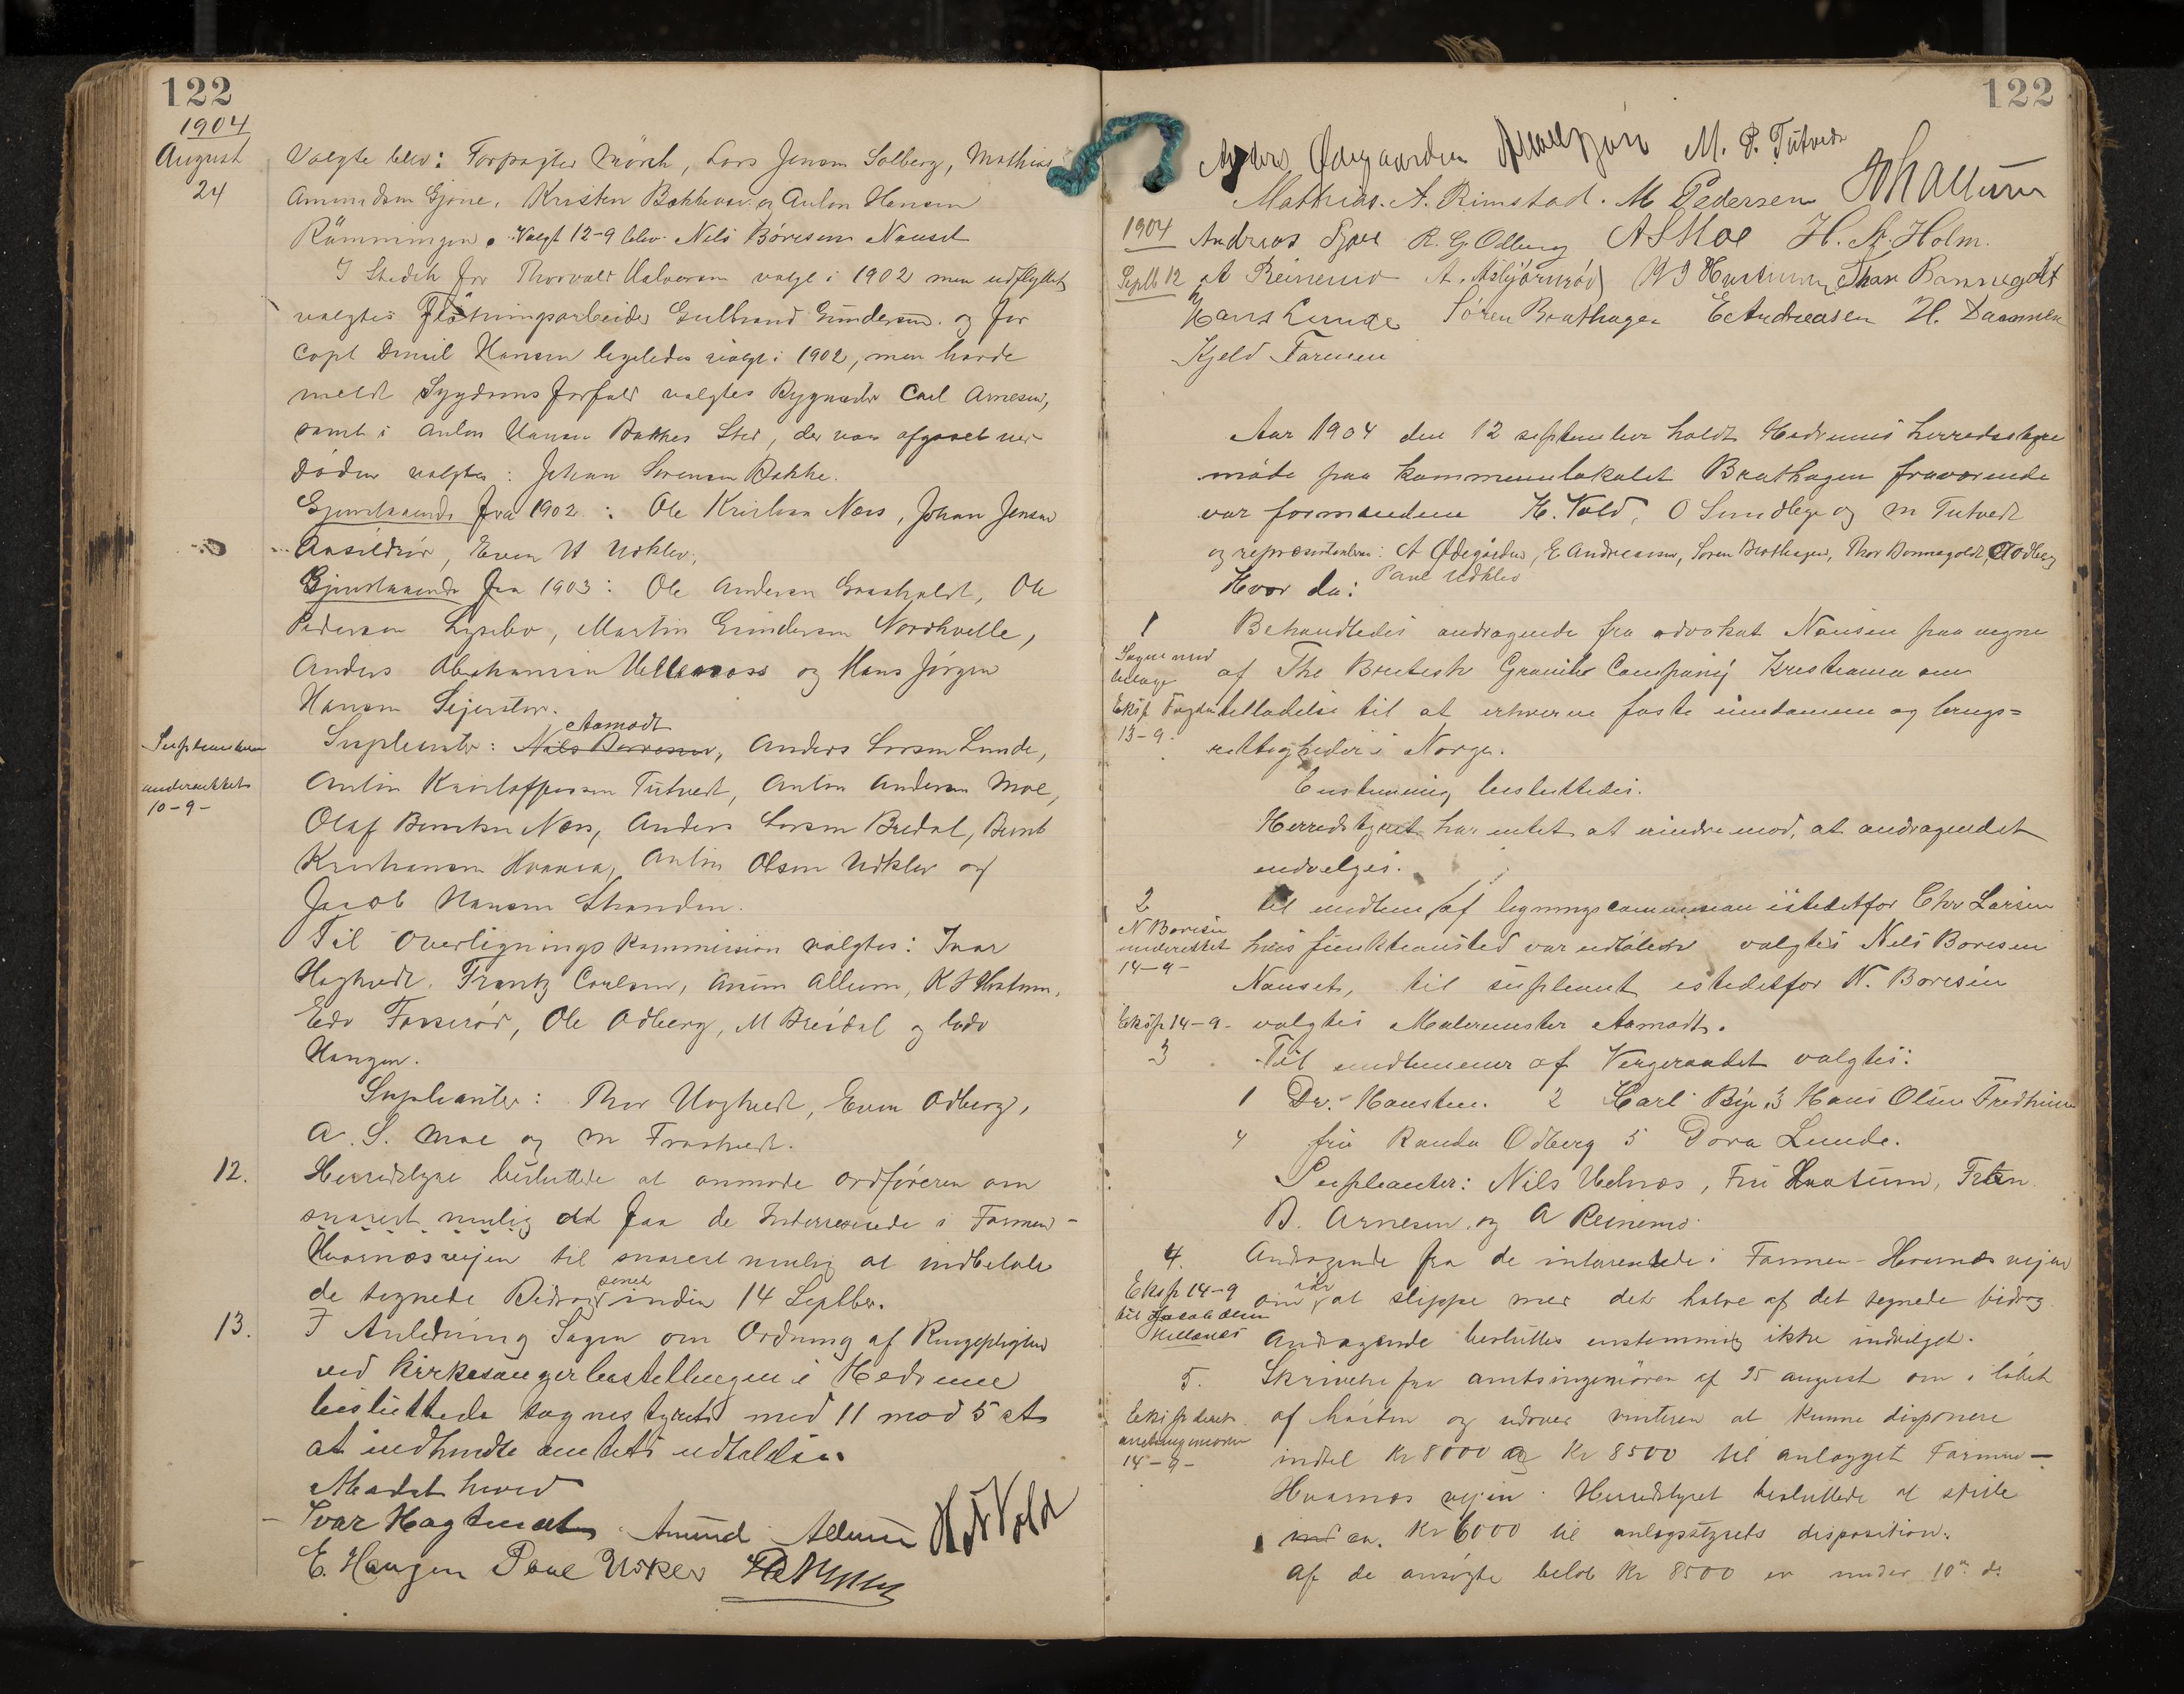 122
1904
August
24
Valgte blev: Forpagter Mörch, Lars Jensen Solberg, Mathias
Amundsen Gjone, Kristen Bakkevar og Anton Hansen
Rämningen. Valgt 12-9 blev Nils Börresen Nauset
I Stedet for Thorvald Halvorsen valgt i 1902 men udflyttet
valgtes Flötningsarbeider Gulbrand Gundersen og for
Capt Emil Hansen ligeledes valgt i 1902, men havde
meldt Sygdoms forfald valgtes Bygmester Carl Arnesen,
samt i Anton Hansen Bakkes Sted, der var afgaaet ved
döden valgtes: Johan Sörensen Bakke.
Gjenstaaende fra 1902: Ole Kristian Næs, Johan Jensen
Even H Udklev.
Gjenstaaende fra 1903: Ole Andersen Ole
Pedersen Lysebo, Martin Gundersen Nordkvelle,
Anders Abrahamsen og Hans Jörgen
Hansen Sejersten.
Aamodt
Supleanten
underrettet
10-9-
Supleanter: Nils Börresen, Anders Larsen Lunde,
Anton Kristoffersen Tutvedt, Anton Andersen Moe,
Olaf Berntsen Næs, Anders Larsen Bredal, Bernt
Kristiansen Anton Olsen Udklev og
Jacob Hansen Stranden.
Til Overligningskommission valgtes: Ivar
Hogtvedt, Frantz Carlsen, Anun Allum, K S Hvatum,
Edv Ole Odberg, M Bredal og Edv
Haugen.
Supleanter: Thor Hogtvedt, Even Odberg,
A. S. Moe og M Frostvedt.
12.
Herredstyre besluttede at anmode ordföreren om
snarest mulig at faa de Interesserede i Farmen-
Hvarnesvejen til snarest mulig at indbetale
senest
de tegnede Bidrag inden 14 Septbr.
13.
I Anledning Sagen om Ordning af Ringepligten
ved kirkesangerbestillingen i Hedrum
besluttede sognestyret med 11 mod 5 st
at indhente amtets udtalelse.
Mødet hævet
Ivar Hogtvedt Amund Allum H. Vold
E. Haugen Paul Udklev
122
Anders Ødegaarden M. P. Tutvedt
Mathias. A. Rimstad. M Pedersen
1904
Andreas Gjone R. G. Odberg A S Moe H. A. Holm.
Septb 12
A Reinemo A. Asbjörnröd Thor Bommegoldt
Hans Lunde Sören Brathagen E Andreasen H. Daanen
Kjeld Farmen
Aar 1904 den 12 september holdt Hedrums herredsstyre
möde paa kommunelokalet Brathagen fraværende
var formændene H. Vold, O Sundbye og M Tutvedt
og repræsentanterne: A Ødegården, E Andreassen, Sören Brathagen, Thor Bommegoldt, O Odberg
Paul Udklev
Hvor da:
1
Behandledes andragende fra advokat Nansen paa vegne
Sagen med
bilage
af The British Granite Company Kristiania om
Eksp. Fogden
13-9.
tilladelse til at erhverve faste eiendomme og brugs=
rettigheder i Norge.
Enstemmig besluttedes.
Herredstyret har intet at erindre mod, at andragendet
indvilges.
2
til medlem af ligningscommision istedetfor Chr Larsen
N Boresen
underrettet
14-9-
hvis funktionstid var udlöben valgtes Nils Boresen
Nauset, til supleant istedetfor N. Boresen
Eksp 14-9-
valgtes Malermester Aamodt.
3
Til medlemmer af Vergeraadet valgtes:
1 Dr. Hansteen. 2 Karl Bye 3 Hans Olsen Fredheim
4 fru Randa Odberg 5 Dora Lunde.
Supleanter: Nils Udnæs, Fru Hvatum, Frkn.
B. Arnesen og A Reinemo.
4.
Andragende fra de interessede i Farmen-Hvarnes vejen
Eksp 14-9
til Jacob Olsen
om at slippe med det halve af det tegnede bidrag
Andragende besluttes enstemmig ikke indvilget.
5.
Skrivelse fra amtsingeniören af 25 august om i löbet
Ekspederet
amtsingeniören
14-9-
af hösten og udover vinteren at kunne disponere
indtil Kr 8000 a Kr 8500 til anlægget Farmen-
Hvarnes vejen. Herredstyret besluttede at stille
ca. Kr 6000 til anlægsstyrets disposition.
Af de ansögte belöb Kr 8500 er under 10de ds